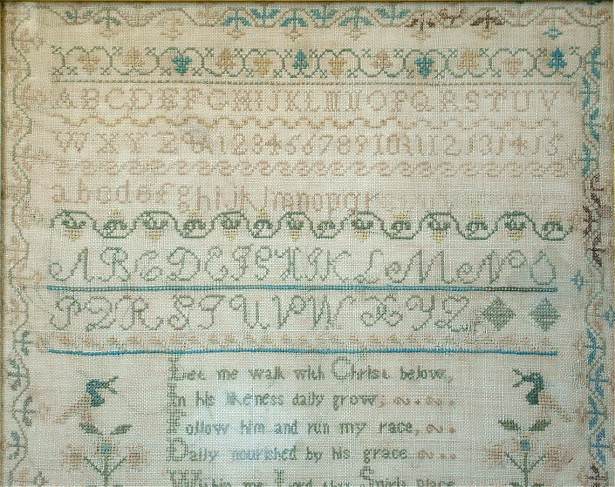 A B C D E F G H I J K L M N O P Q R S T U V
W X Y Z & 1 2 3 4 5 6 7 8 9 10 11 12 13 14 15
a b c d e f g h i j k l m n o p q r
A B C D E F G H I K L M N O
P Q R S T U V W X Y Z
Let me walk with Christ below,
In his likeness daily grow;
Follow him and run my race,
Daily nourished by his grace
Within me Lord thy Spirit place